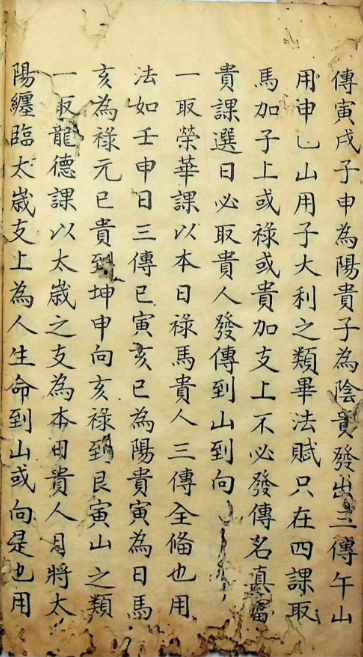 傳寅戌子申為陽貴子為陰貴發出三傳午山
用申乚山用子大利之類畢法賦只在四課取
馬加子上或祿或貴加支上不必發傳名真富
貴課選日必取貴人發傳到山到向
一取榮華課以本日祿馬貴人三傳全俻也用
法如壬申日三傳巳寅亥巳為陽貴寅為日馬
亥為祿元巳貴到坤申向亥祿到艮寅山之類
一取龍德課以太嵗之支為本日貴人月將太
陽纏臨太嵗支上為人生命到山或向是也用